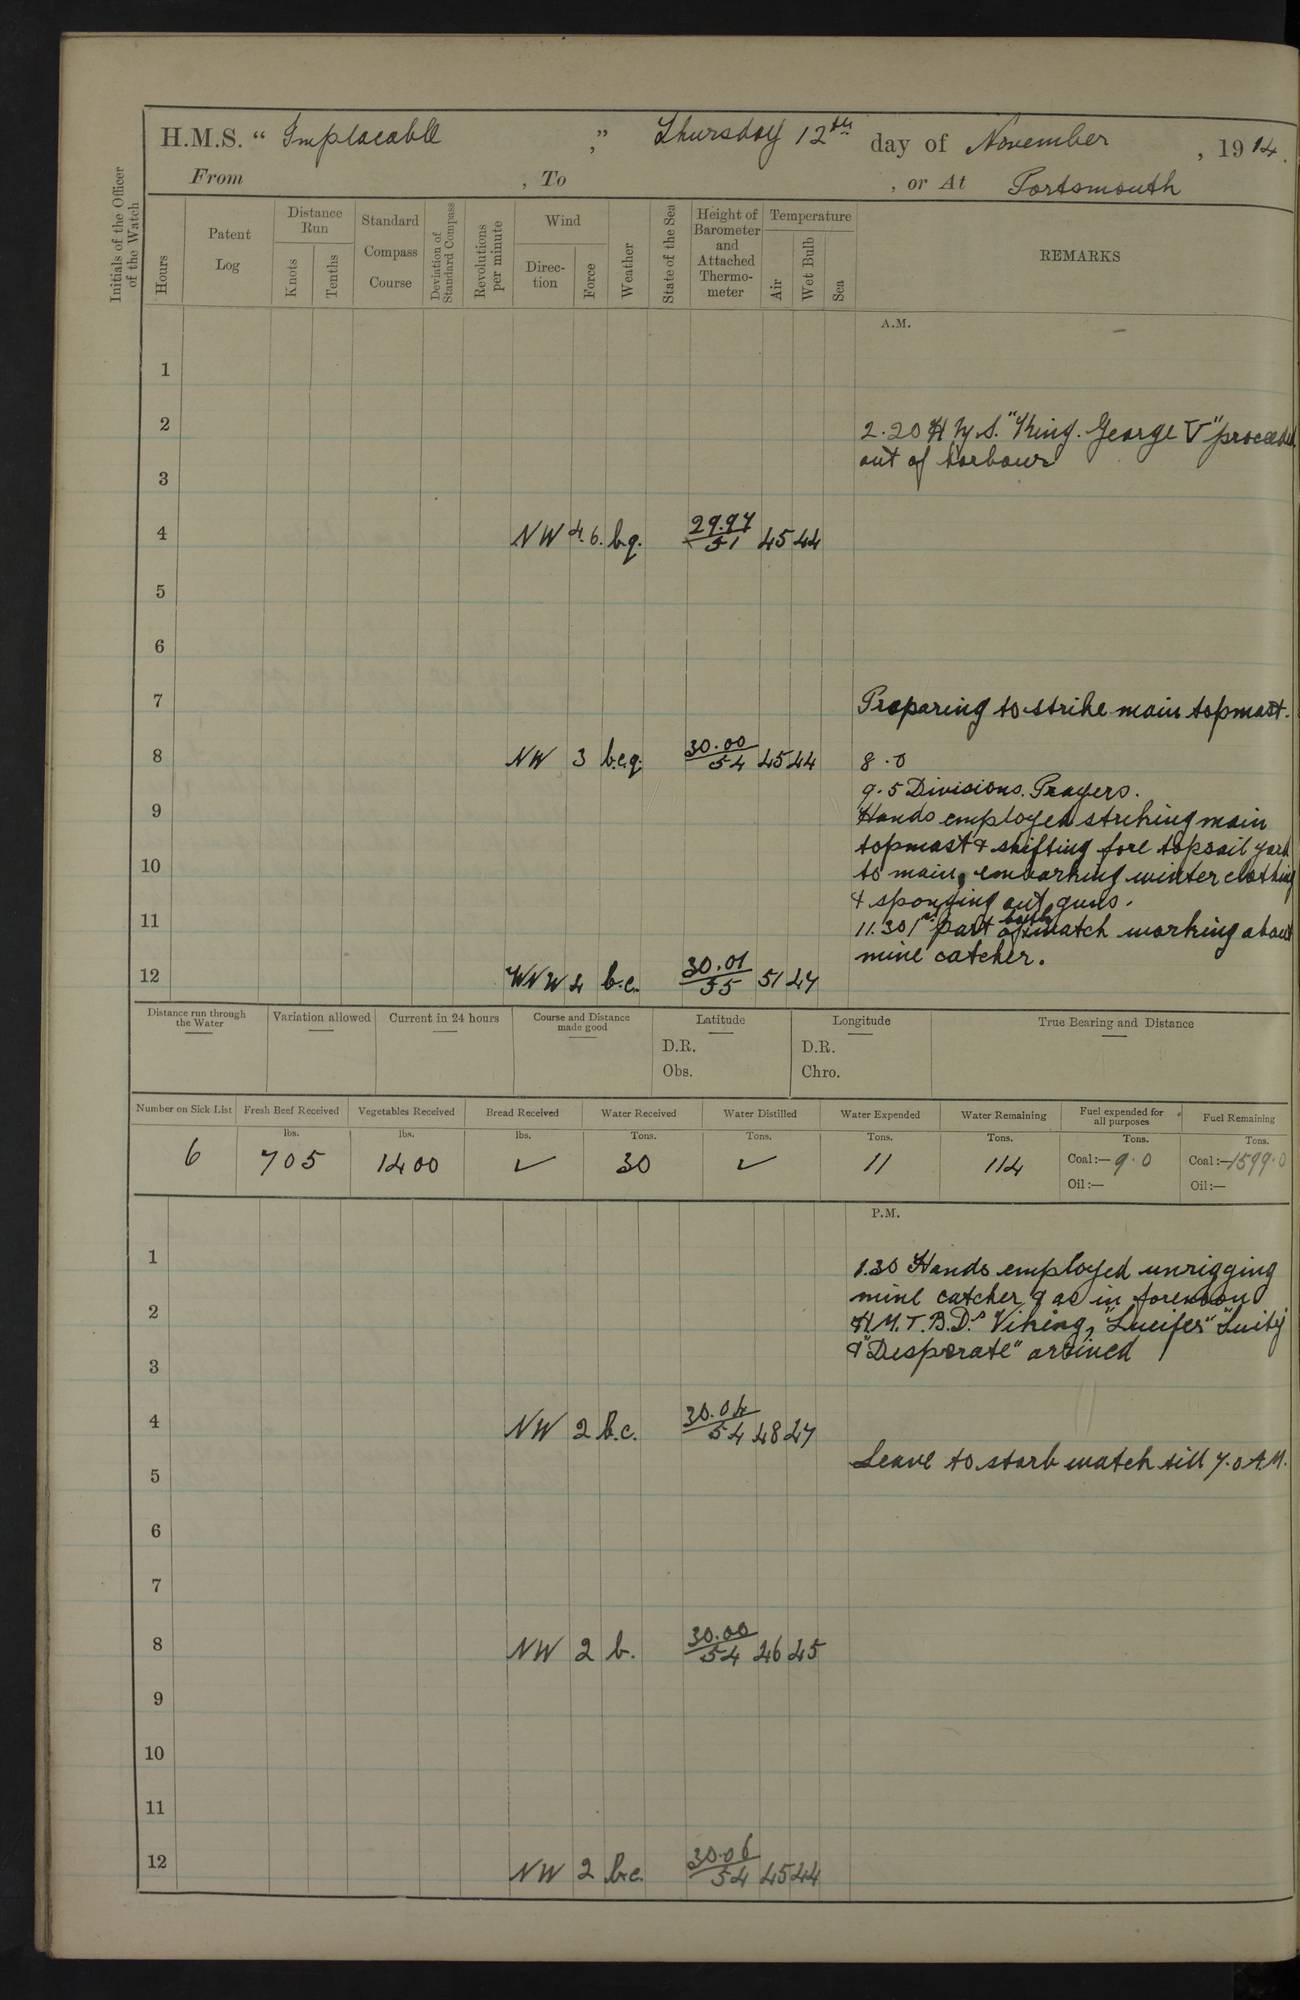 H.M.S. “ Implacable ,” Thursday 12th day of November , 1914.
From , To , or At Portsmouth
Initials of the Officer of the Watch
Hours
Patent Log
Distance Run
Knots
Tenths
Standard Compass Course
Deviation of Standard Compass
Revolutions per minute
Wind
Direction
Force
Weather
State of the Sea
Height of Barometer and Attached Thermometer
Temperature
Air
Wet Bulb
Sea
REMARKS
A.M.
1
2
2.20 H.M.S. "King. George V" proceeded
out of harbour
3
4 NW 4.6. b.q. 29.97/51 45 44
5
6
7
Preparing to strike main topmast.
8 NW 3 b.c.q. 30.00/54 45 44 8.0
9.5 Divisions. Prayers.
9
Hands employed striking main
topmast & shifting fore topsail yard
10
to main, embarking winter clothing
& sponging out guns.
11
11.30 1st part of both watch working about
mine catcher.
12 WNW 4 b.c. 30.01/55 51 47
Distance run through the Water
Variation allowed
Current in 24 hours
Course and Distance made good
Latitude
D.R.
Obs.
Longitude
D.R.
Chro.
True Bearing and Distance
Number on Sick List 6
Fresh Beef Received lbs. 705
Vegetables Received lbs. 1400
Bread Received lbs. ✓
Water Received Tons. 30
Water Distilled Tons. ✓
Water Expended Tons. 11
Water Remaining Tons. 114
Fuel expended for all purposes Tons.
Coal:— 9.0
Oil:—
Fuel Remaining Tons.
Coal:— 1599.0
Oil:—
P.M.
1
1.30 Hands employed unrigging
mine catcher & as in forenoon
2
H.M.T.B.Ds Viking, "Lucifer"
3
& "Desperate" arrived
4 NW 2 b.c. 30.04/54 48 47
Leave to starb watch till 7.0 A.M.
5
6
7
8 NW 2 b. 30.00/54 46 45
9
10
11
12 NW 2 b.c. 30.06/54 45 44